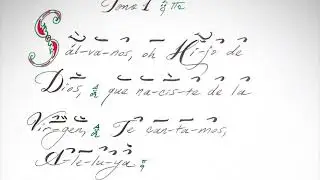 Tono 1
Sál-va-nos, oh Hi-jo de
Dios, que na-cis-te de la
Vir-gen, Te can-ta-mos,
A-le-lu-ya